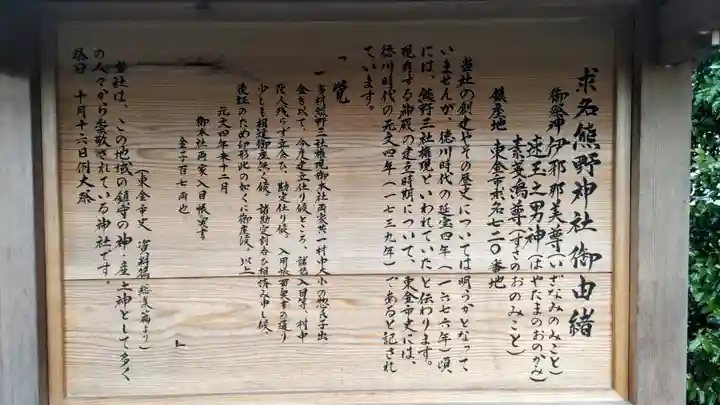 求名熊野神社御由緒
御祭神 伊邪那美尊(いざなみのみこと)
速玉之男神(はやたまのおのかみ)
素戔嗚尊(すさのおのみこと)
鎮座地 東金市求名七二〇番地
当社の創建やその歴史については明らかとなって
いませんが、徳川時代の延宝四年(一六七六年)頃
には、熊野三社権現といわれていたと伝わります。
現存する御殿の建立時期について、東金市史には、
徳川時代の元文四年(一七三九年)であると記され
ています。
「覚
一 当村熊野三社権現御本社両家共一村中大小の惣氏子出
金を以て、今度建立仕り候ところ、諸色入目等、村中
老人残らず立会た、勘定仕り候、入用帳面要書の通り
少とも相違御座無く候、諸勘定割合ひ相済み申し候、
後証のため印形此の如くに御座候、以上
元文四年未十二月
御本社両家入目帳要書
金子百七両也
」
(東金市史 資料篇 総集篇より)
当社は、この地域の鎮守の神・産土神として多く
の人々から崇敬されている神社です。
祭日 十月十六日例大祭